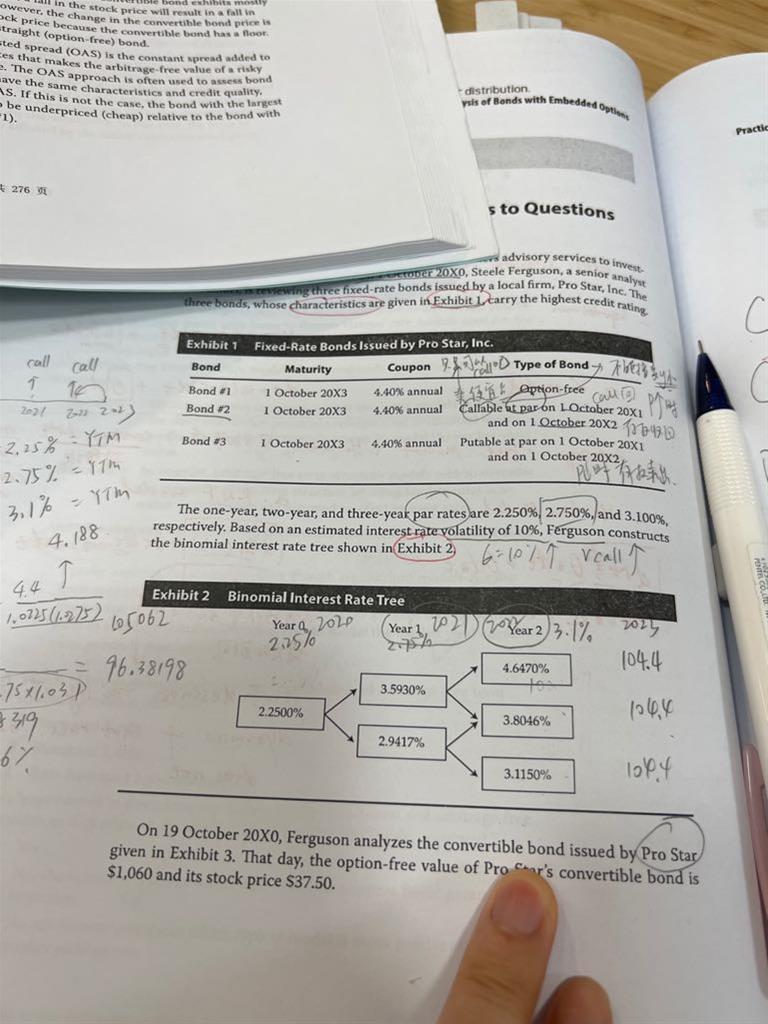 in the stock price will result in a fall in
owever, the change in the convertible bond price is
ck price because the convertible bond has a floor.
traight (option-free) bond.
sted spread (OAS) is the constant spread added to
es that makes the arbitrage-free value of a risky
e. The OAS approach is often used to assess bond
ave the same characteristics and credit quality.
AS. If this is not the case, the bond with the largest
o be underpriced (cheap) relative to the bond with
1).
276 页
distribution.
ysis of Bonds with Embedded Options
Practic
s to Questions
advisory services to invest-
October 20X0, Steele Ferguson, a senior analyst
is reviewing three fixed-rate bonds issued by a local firm, Pro Star, Inc. The
three bonds, whose characteristics are given in Exhibit 1, carry the highest credit rating.
Exhibit 1 Fixed-Rate Bonds Issued by Pro Star, Inc.
Bond Maturity Coupon Type of Bond
Bond #1 1 October 20X3 4.40% annual Option-free
Bond #2 1 October 20X3 4.40% annual Callable at par on 1 October 20X1
and on 1 October 20X2
Bond #3 1 October 20X3 4.40% annual Putable at par on 1 October 20X1
and on 1 October 20X2
call call
2021 2022 2023
2.25% = YTM
2.75% = YTM
3.1% = YTM
The one-year, two-year, and three-year par rates are 2.250%, 2.750%, and 3.100%,
respectively. Based on an estimated interest rate volatility of 10%, Ferguson constructs
the binomial interest rate tree shown in Exhibit 2.
6=10%↑ Vcall↑
4.188
4.4
105062
= 96.38198
.75×1.031
319
6%
Exhibit 2 Binomial Interest Rate Tree
Year 0 2020 Year 1 2021 2022 Year 2 3.1% 2023
2.25% 2.75%
4.6470% 104.4
3.5930%
2.2500% 3.8046% 104.4
2.9417%
3.1150% 104.4
On 19 October 20X0, Ferguson analyzes the convertible bond issued by Pro Star
given in Exhibit 3. That day, the option-free value of Pro Star's convertible bond is
$1,060 and its stock price $37.50.